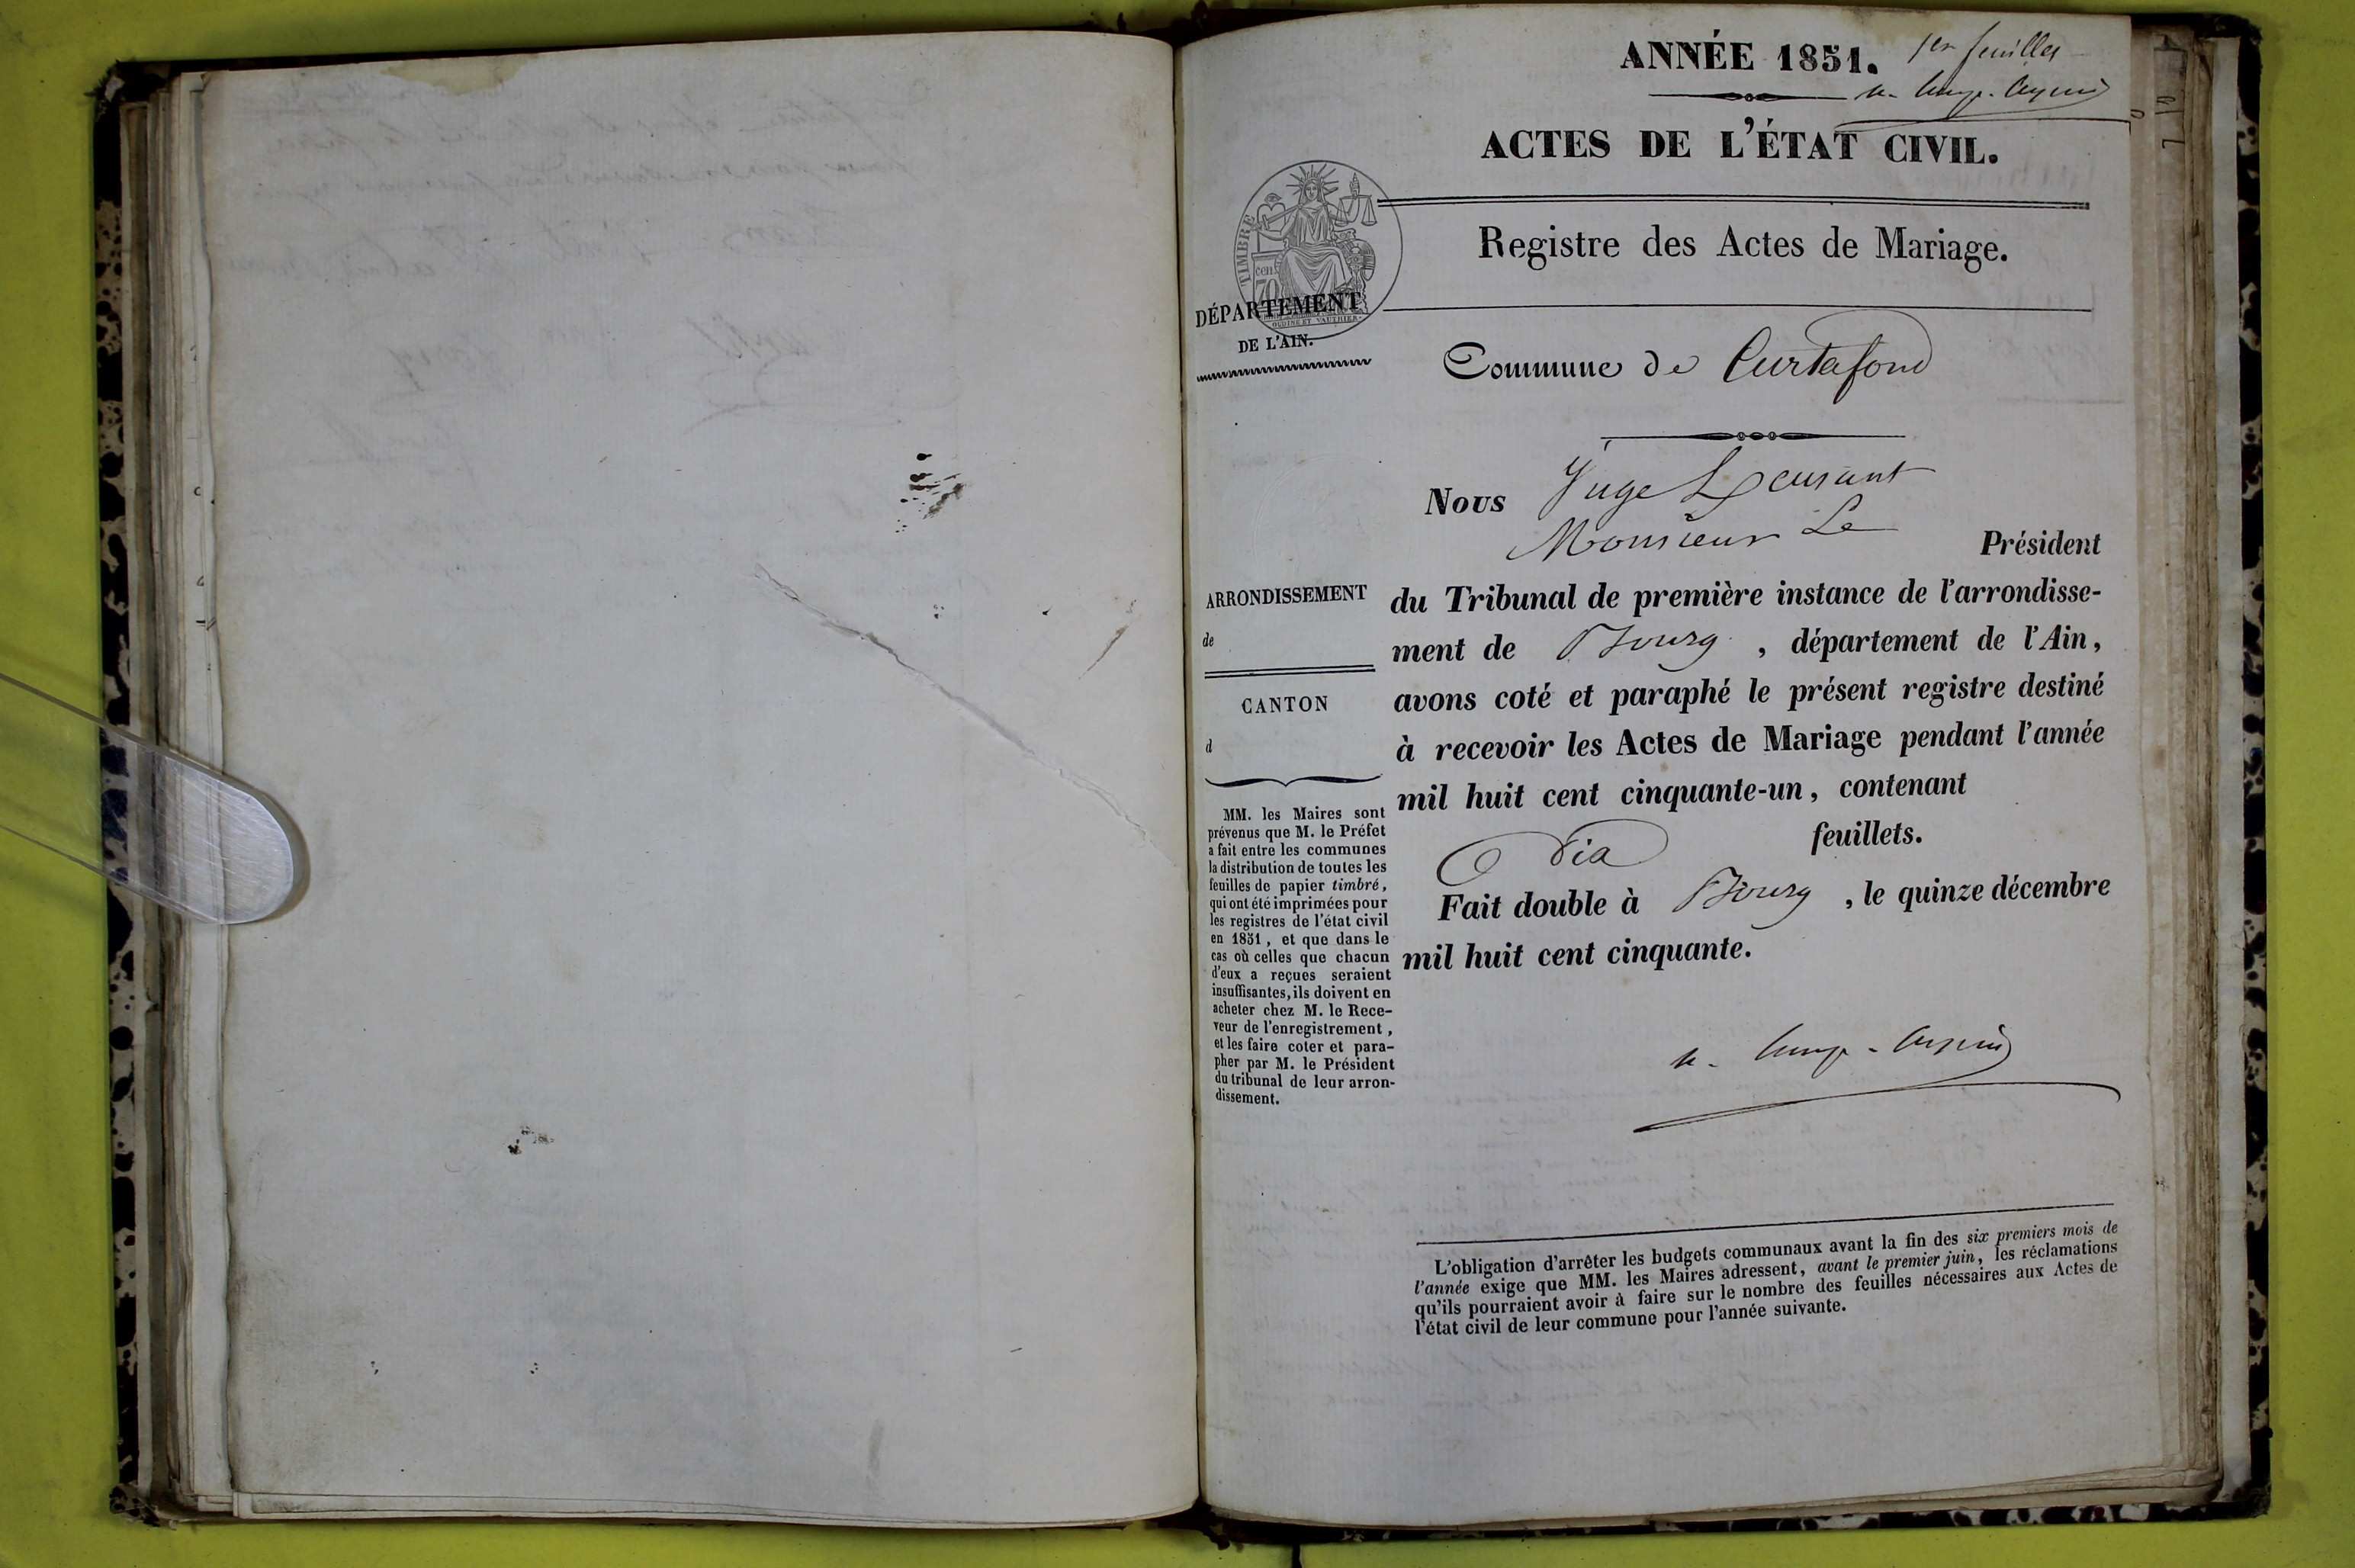 ANNÉE 1851.
1er feuillet
ACTES DE L'ÉTAT CIVIL.
Registre des Actes de Mariage.
TIMBRE
70 cent
OUDINÉ ET VAUTHIER
DÉPARTEMENT
DE L'AIN.
Commune de Curtafond
Nous Juge
Monsieur Le Président
du Tribunal de première instance de l'arrondisse-
ment de Bourg, département de l'Ain,
avons coté et paraphé le présent registre destiné
à recevoir les Actes de Mariage pendant l'année
mil huit cent cinquante-un, contenant
Dix feuillets.
Fait double à Bourg, le quinze décembre
mil huit cent cinquante.
ARRONDISSEMENT
de
CANTON
d
MM. les Maires sont
prévenus que M. le Préfet
a fait entre les communes
la distribution de toutes les
feuilles de papier timbré,
qui ont été imprimées pour
les registres de l'état civil
en 1851, et que dans le
cas où celles que chacun
d'eux a reçues seraient
insuffisantes, ils doivent en
acheter chez M. le Rece-
veur de l'enregistrement,
et les faire coter et para-
pher par M. le Président
du tribunal de leur arron-
dissement.
L'obligation d'arrêter les budgets communaux avant la fin des six premiers mois de
l'année exige que MM. les Maires adressent, avant le premier juin, les réclamations
qu'ils pourraient avoir à faire sur le nombre des feuilles nécessaires aux Actes de
l'état civil de leur commune pour l'année suivante.